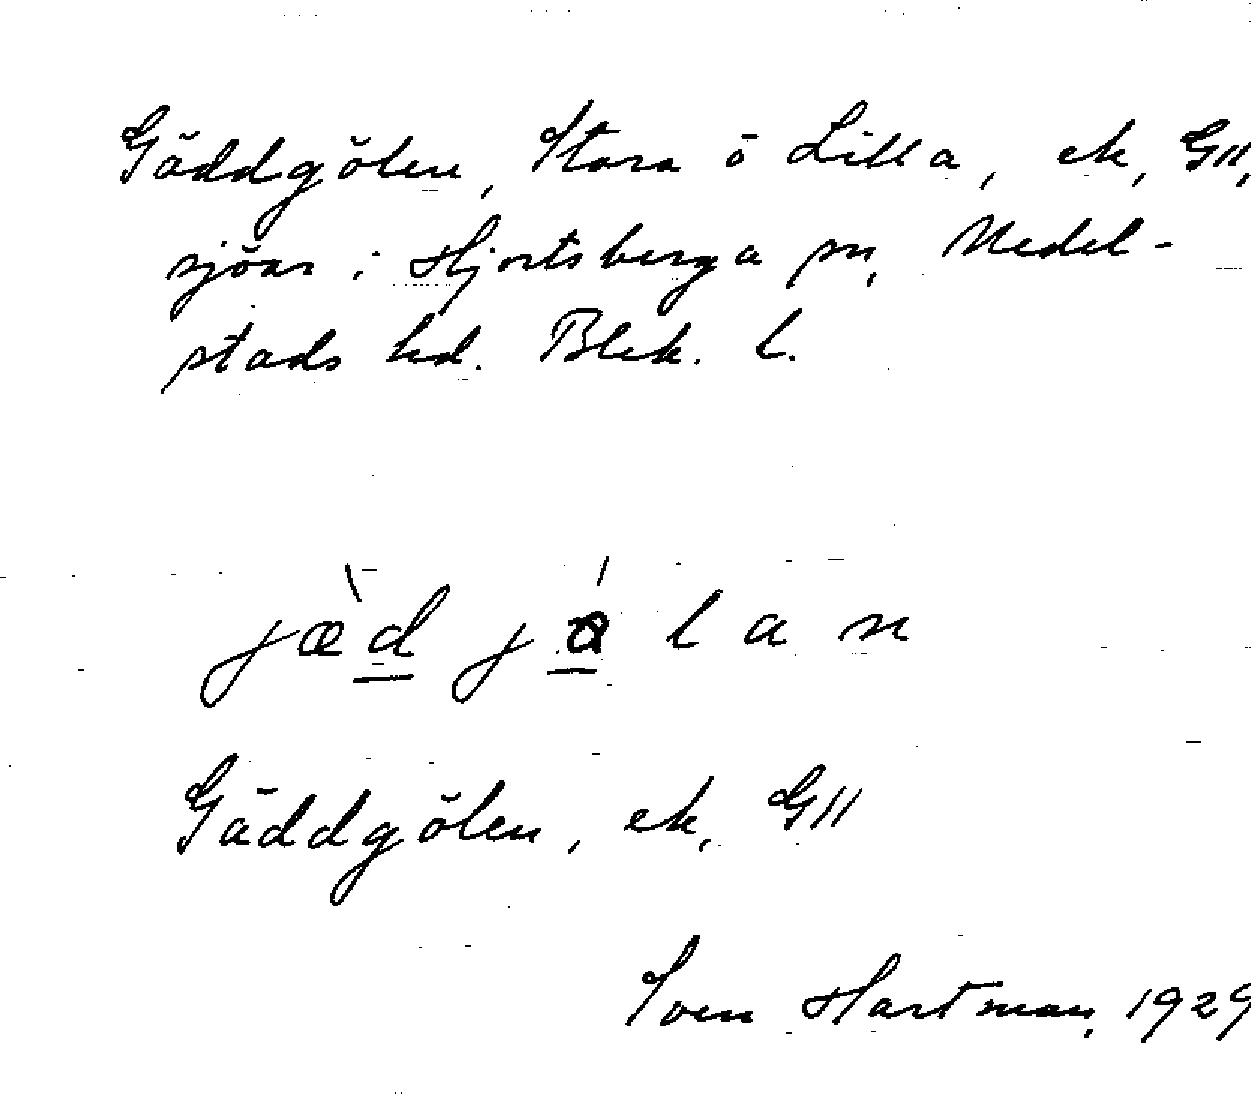 Gäddgölen, Stora o Lilla, ek, GII,
sjöar i Hjortsberga sn, Medel-
stads hd. Blek. l.
jæ̀d já lan
Gäddgölen, ek, GII
Sven Hartman, 1929